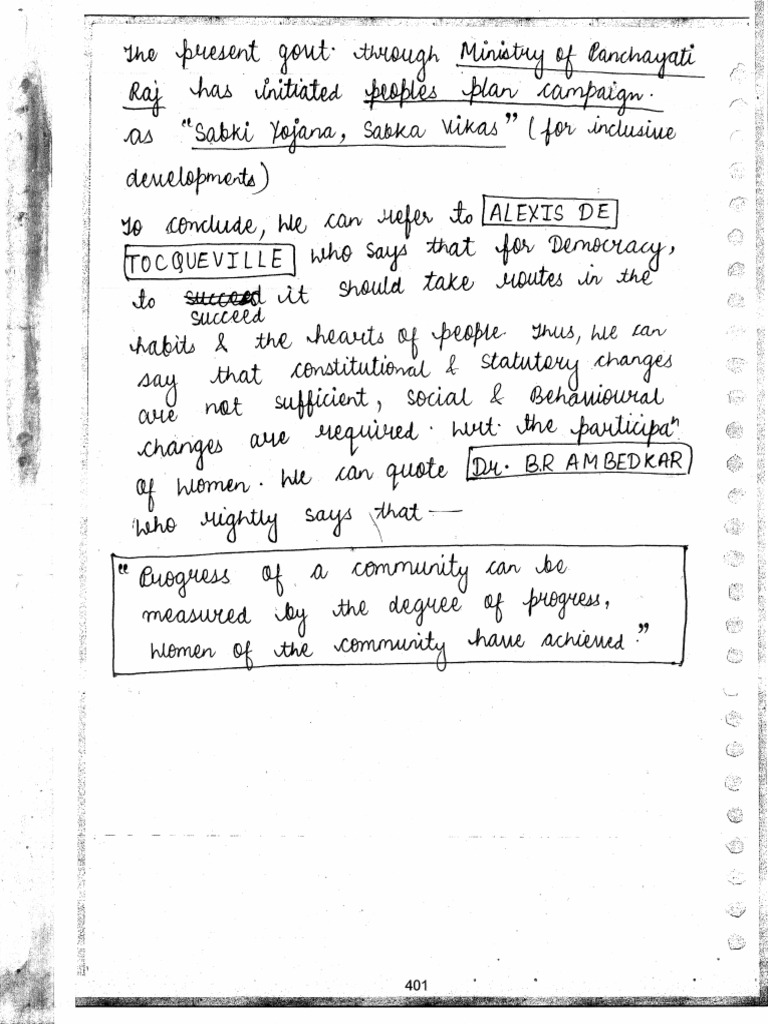 The present govt. through Ministry of Panchayati
Raj has initiated peoples plan campaign.
as "Sabki Yojana, Sabka Vikas" (for inclusive
developments)
To conclude, we can refer to ALEXIS DE
TOCQUEVILLE who says that for Democracy,
to succeed it should take routes in the
succeed
habits & the hearts of people. Thus, we can
say that constitutional & statutory changes
are not sufficient, social & Behavioural
changes are required. wrt. the participaⁿ
of women. We can quote Dr. B.R AMBEDKAR
who rightly says that —
"Progress of a community can be
measured by the degree of progress,
women of the community have achieved."
401